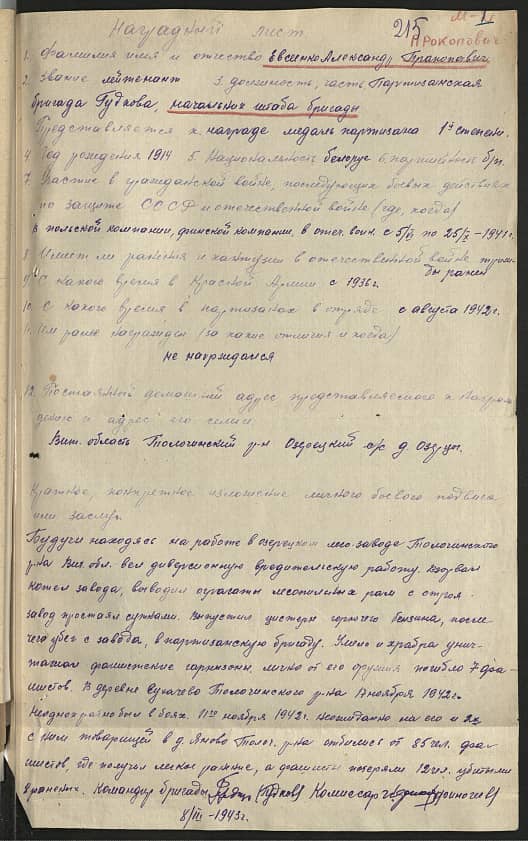 Наградный лист
215
М-I
ПРОКОПОВИЧ
1. Фамилия имя и отчество Евсиенко Александр Пракопович.
2. Звание лейтенант 3. должность, часть Партизанская
бригада Гудкова, начальник штаба бригады
Представляется к награде медаль партизана 1й степени.
4. Год рождения 1914 5. Национальность белорус 6. партийность б/п.
7. Участие в гражданской войне, последующих боевых действиях
по защите СССР и отечественной войне (где, когда)
в польской компании, финской компании, в отеч. войн. с 5/VI по 25/X-1941г.
8. Имеет ли ранения и контузии в отечественной войне трижды ранен
9. С какого время в Красной Армии с 1936г.
10. С какого время в партизанах в отряде с августа 1942г.
11. Чем ранее награжден (за какие отличия и когда)
не награждался
12. Постоянный домашний адрес представляемого к награждению и адрес его семьи
Вит. область Толочинский р-н Оздоецкий с/с д. Оздоцы.
Краткое, конкретное изложение личного боевого подвига
или заслуг.
Будучи находясь на работе в лесозаводе Толочинского
р-на Вит. обл. вел диверсионную вредительскую работу. Взорвал
котел завода, выводил агрегаты лесопильных рам с строя.
завод простаял сутками. Выпустил цистерн горючего бензина, после
чего убег с завода, в партизанскую бригаду. Умело и храбра унич-
тажал фашистские гарнизоны, лично от его оружия погибло 7 фа-
шистов. В деревне Сукачево Толочинского р-на ноября 1942г.
Неоднократно был в боях. 11го ноября 1942г. неожиданно на его и 2х
с ним товарищей в д. Яново Толоч. р-на отбились от 85 чел. фа-
шистов, где получил легкое ранение, а фашисты потеряли 12 чел. убитыми
раненых. Командир бригады (Гудков) Комиссар
8/III-1943г.